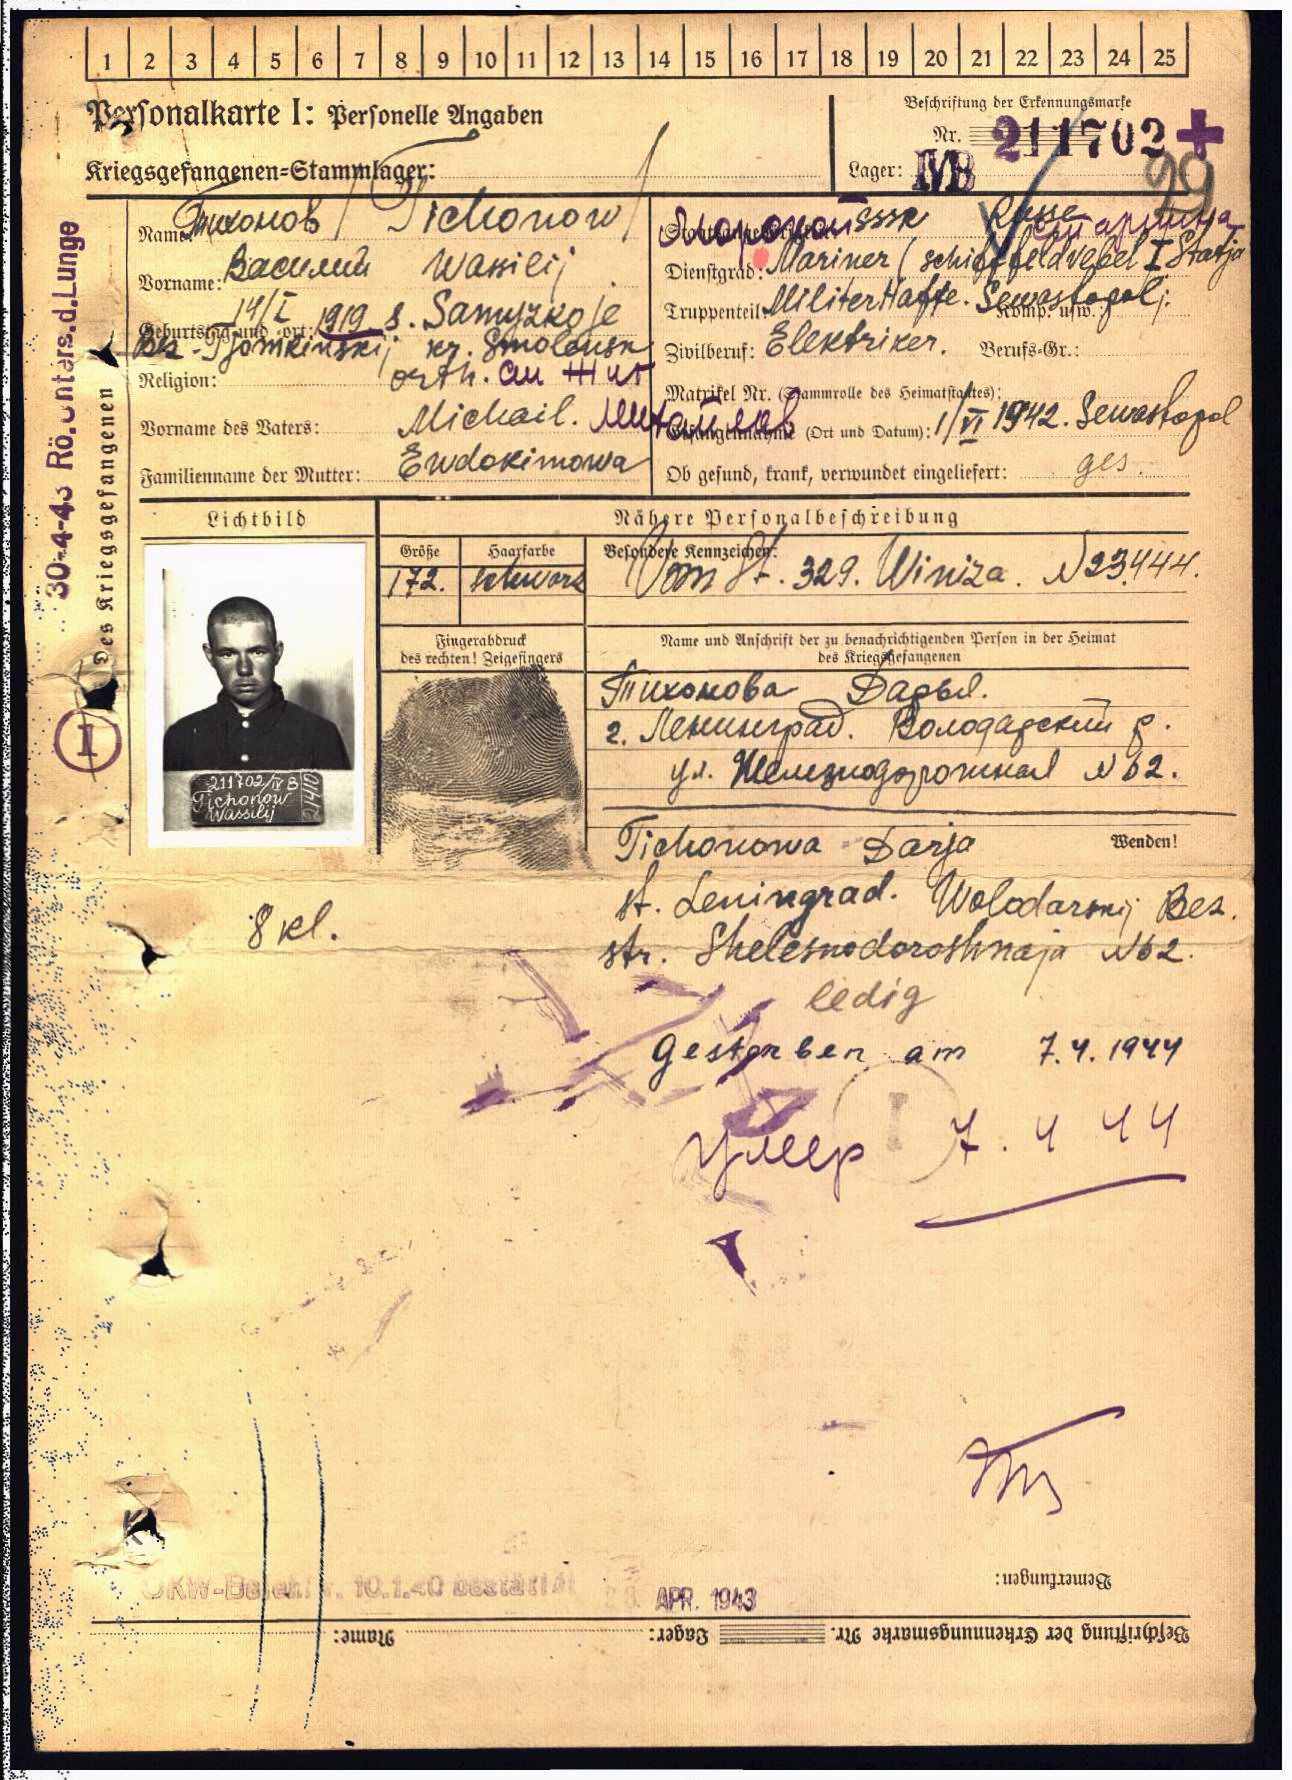 1 2 3 4 5 6 7 8 9 10 11 12 13 14 15 16 17 18 19 20 21 22 23 24 25
Personalkarte I: Personelle Angaben
Beschriftung der Erkennungsmarke
Nr. 211702 +
Kriegsgefangenen-Stammlager:
Lager: IVB
29
Name: Тихонов / Tichonow /
Vorname: Василий Wassilij
Geburtstag und -ort: 14/I 1919 s. Samyzkoje
Bez. Tjomkinskij kr. Smolensk
Religion: orth.
Vorname des Vaters: Michail.
Familienname der Mutter: Ewdokimowa
Staatsangehörigkeit: SSSR Russe
Dienstgrad: Mariner (schiffsfeldwebel I Statja
Truppenteil: Sewastopol. Komp. usw.:
Zivilberuf: Elektriker. Berufs-Gr.:
Matrikel Nr. (Stammrolle des Heimatstaates):
Gefangennahme (Ort und Datum): 1/VI 1942. Sewastopol
Ob gesund, krank, verwundet eingeliefert: ges.
30-4-43 Rö.Unters.d.Lunge
Des Kriegsgefangenen
I
Lichtbild
Nähere Personalbeschreibung
Größe
172.
Haarfarbe
schwarz
Besondere Kennzeichen:
Vom St. 329. Winiza. N23444.
Fingerabdruck
des rechten! Zeigefingers
Name und Anschrift der zu benachrichtigenden Person in der Heimat
des Kriegsgefangenen
Тихонова Дарья.
г. Ленинград. Володарский р.
ул. Железнодорожная N 62.
211702/IV B
Tichonow
Wassilij
Tichonowa Darja
Wenden!
st. Leningrad. Wolodarskij Bez.
str. Shelesnodoroshnaja N62.
8 kl.
ledig
Gestorben am 7.4.1944
I
Умер 7.4 44
OKW-Befehl v. 10.1.40 bestätigt
APR. 1943
Bemerkungen:
Beschriftung der Erkennungsmarke Nr. Lager: Name: